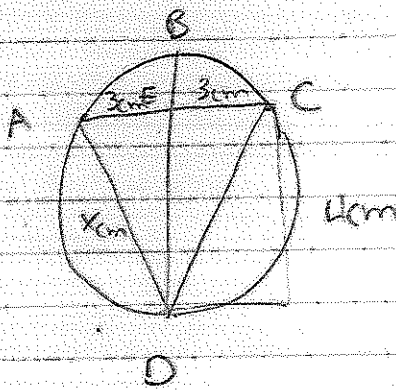 B
3cm E 3cm
A C
xcm 4cm
D